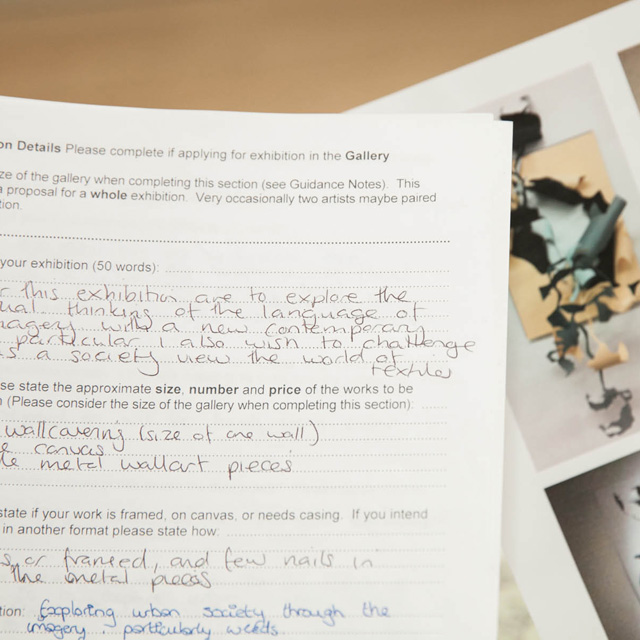 on Details Please complete if applying for exhibition in the Gallery
ze of the gallery when completing this section (see Guidance Notes). This
a proposal for a whole exhibition. Very occasionally two artists maybe paired
tion.
your exhibition (50 words):
r this exhibition are to explore the
ual thinking of the language of
magery with a new contemporary
particular I also wish to challenge
s a society view the world of
textiles
se state the approximate size, number and price of the works to be
n (Please consider the size of the gallery when completing this section):
wallcovering (size of one wall)
e canvas
le metal wallart pieces
state if your work is framed, on canvas, or needs casing. If you intend
in another format please state how:
s, or framed, and few nails in
the metal pieces
tion: Exploring urban society through the
imagery, particularly weeds.